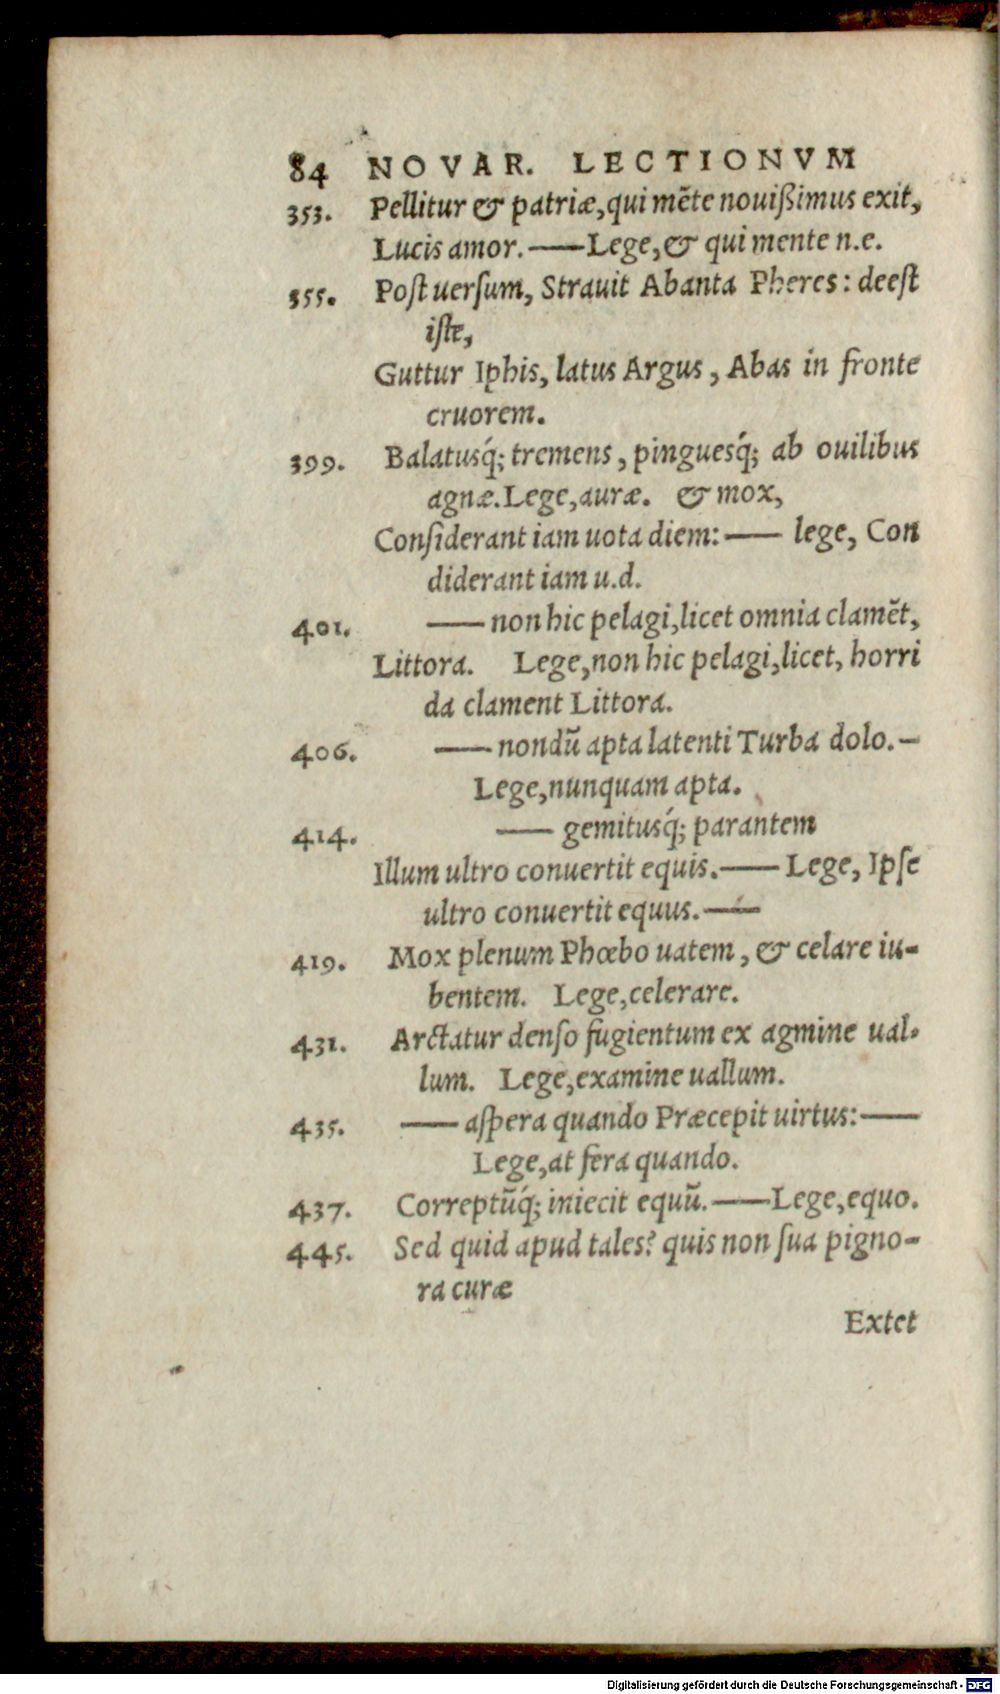 84 NOVAR. LECTIONVM
353. Pellitur & patriæ, qui mēte nouißimus exit,
Lucis amor. — Lege, & qui mente n.e.
355. Post uersum, Strauit Abanta Pheres: deest
iste,
Guttur Iphis, latus Argus, Abas in fronte
cruorem.
399. Balatusq́; tremens, pinguesq́; ab ouilibus
agnæ. Lege, auræ. & mox,
Considerant iam uota diem: — lege, Con
diderant iam u.d.
401. — non hic pelagi, licet omnia clamēt,
Littora. Lege, non hic pelagi, licet, horri
da clament Littora.
406. — nondū apta latenti Turba dolo. –
Lege, nunquam apta.
414. — gemitusq́; parantem
Illum ultro conuertit equis. — Lege, Ipse
ultro conuertit equus. —
419. Mox plenum Phœbo uatem, & celare iu-
bentem. Lege, celerare.
431. Arctatur denso fugientum ex agmine ual-
lum. Lege, examine uallum.
435. — aspera quando Præcepit uirtus: —
Lege, at fera quando.
437. Correptūq́; iniecit equū. — Lege, equo.
445. Sed quid apud tales? quis non sua pigno-
ra curæ
Extet
Digitalisierung gefördert durch die Deutsche Forschungsgemeinschaft - DFG